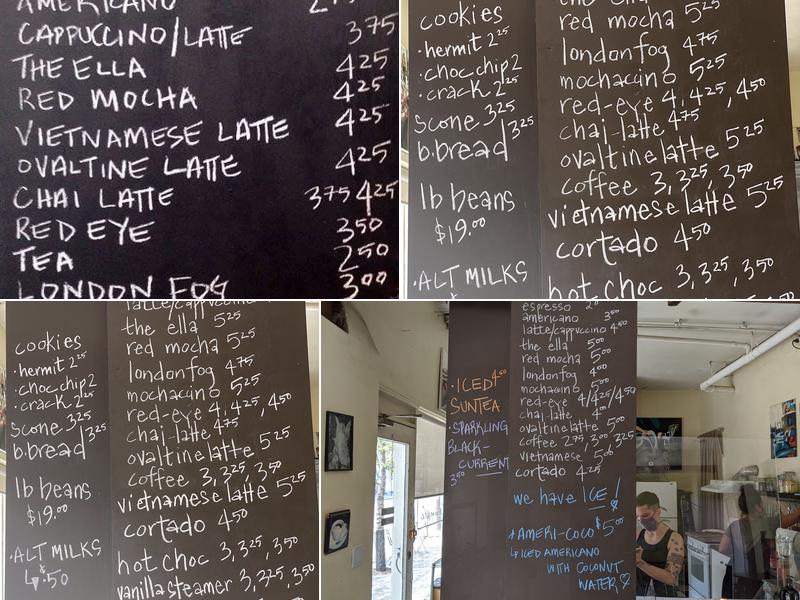 AMERICANO
CAPPUCCINO/LATTE 3 75
THE ELLA 4 25
RED MOCHA 4 25
VIETNAMESE LATTE 4 25
OVALTINE LATTE 4 25
CHAI LATTE 3 75 4 25
RED EYE 3 50
TEA 2 50
LONDON FOG 3 00
cookies
·hermit 2 25
·choc chip 2
·crack 2 25
scone 3 25
b.bread 3 25
1b beans
$19.00
·ALT MILKS
the ella
red mocha 5 25
london fog 4 75
mochacino 5 25
red-eye 4, 4 25, 4 50
chai-latte 4 75
ovaltine latte 5 25
coffee 3, 3 25, 3 50
vietnamese latte 5 25
cortado 4 50
hot choc 3, 3 25, 3 50
cookies
·hermit 2 25
·choc chip 2
·crack 2 25
scone 3 25
b.bread 3 25
1b beans
$19.00
·ALT MILKS
↳ .50
latte/cappuccino
the ella 5 25
red mocha 5 25
london fog 4 75
mochacino 5 25
red-eye 4, 4 25, 4 50
chai-latte 4 75
ovaltine latte 5 25
coffee 3, 3 25, 3 50
vietnamese latte 5 25
cortado 4 50
hot choc 3, 3 25, 3 50
vanilla steamer 3, 3 25, 3 50
·ICED 4 00
SUNTEA
·SPARKLING
BLACK-
CURRENT
3 50
espresso
americano 3 50
latte/cappuccino 4 50
the ella 5 00
red mocha 5 00
london fog 4 00
mochacino 5 00
red-eye 4/4 25/4 50
chai-latte 4 00
ovaltine latte 5 00
coffee 2 75, 3 00, 3 25
vietnamese 5 00
cortado 4 25
we have ICE!
*AMERI-COCO $5 00
↳ ICED AMERICANO
WITH COCONUT
WATER ♡